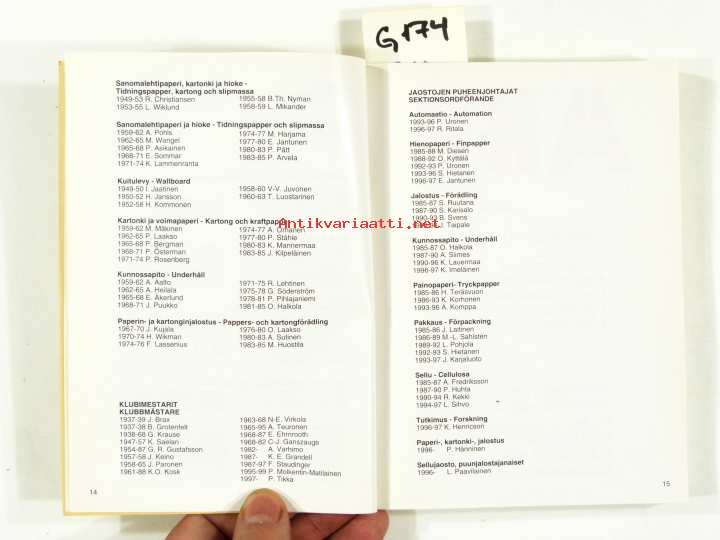 G 174
Sanomalehtipaperi, kartonki ja hioke -
Tidningspapper, kartong och slipmassa
1949-53 R. Christiansen
1953-55 L. Wiklund
1955-58 B.Th. Nyman
1958-59 L. Mikander
Sanomalehtipaperi ja hioke - Tidningspapper och slipmassa
1959-62 A. Pohls
1962-65 M. Wangel
1965-68 P. Asikainen
1968-71 E. Sommar
1971-74 K. Lammenranta
1974-77 M. Harjama
1977-80 E. Jantunen
1980-83 P. Pätt
1983-85 P. Arvela
Kuitulevy - Wallboard
1949-50 I. Jaatinen
1950-52 H. Jansson
1952-58 H. Kommonen
1958-60 V-V. Juvonen
1960-63 T. Luostarinen
Kartonki ja voimapaperi - Kartong och kraftpapper
1959-62 M. Mäkinen
1962-65 P. Laakso
1965-68 P. Bergman
1968-71 P. Österman
1971-74 P. Rosenberg
1974-77 A. Olmanen
1977-80 P. Ståhle
1980-83 K. Mannermaa
1983-85 J. Kilpeläinen
Kunnossapito - Underhåll
1959-62 A. Aalto
1962-65 A. Heilala
1965-68 E. Åkerlund
1968-71 J. Puukko
1971-75 R. Lehtinen
1975-78 G. Söderström
1978-81 P. Pihlajaniemi
1981-85 O. Halkola
Paperin- ja kartonginjalostus - Pappers- och kartongförädling
1967-70 J. Kujala
1970-74 H. Wikman
1974-76 F. Lassenius
1976-80 O. Laakso
1980-83 A. Sutinen
1983-85 M. Huostila
KLUBIMESTARIT
KLUBBMÄSTARE
1937-39 J. Brax
1937-38 B. Grotenfelt
1938-68 G. Krause
1947-57 K. Saelan
1954-87 G. R. Gustafsson
1957-58 J. Keino
1958-65 J. Paronen
1961-88 K.O. Kosk
1963-68 N-E. Virkola
1965-95 A. Teuronen
1968-87 E. Ehrnrooth
1968-82 C-J. Ganszauge
1982- A. Vartsmo
1987- K. E. Grandell
1987-97 F. Staudinger
1995-99 P. Molkentin-Matilainen
1997- P. Tikka
14
Antikvariaatti.net
JAOSTOJEN PUHEENJOHTAJAT
SEKTIONSORDFÖRANDE
Automaatio - Automation
1993-96 P. Uronen
1996-97 R. Ritala
Hienopaperi - Finpapper
1985-88 M. Diesen
1988-92 O. Kyttälä
1992-93 P. Uronen
1993-96 S. Hietanen
1996-97 E. Jantunen
Jalostus - Förädling
1985-87 S. Ruutana
1987-90 S. Kerisalo
1990-93 B. Svens
I. Taipale
Kunnossapito - Underhåll
1985-87 O. Halkola
1987-90 A. Siimes
1990-96 K. Lauermaa
1996-97 K. Imeläinen
Painopaperi- Tryckpapper
1985-86 H. Teräsvuori
1986-93 K. Korhonen
1993-96 A. Komppa
Pakkaus - Förpackning
1985-86 J. Laitinen
1986-89 M.-L. Sahlsten
1989-92 L. Pohjola
1992-93 S. Hietanen
1993-97 J. Karjaluoto
Sellu - Cellulosa
1985-87 A. Fredriksson
1987-90 P. Huhta
1990-94 R. Kekki
1994-97 L. Sihvo
Tutkimus - Forskning
1996-97 K. Henricson
Paperi-, kartonki-, jalostus
1996- P. Hänninen
Sellujaosto, puunjalostajanaiset
1996- L. Paavilainen
15